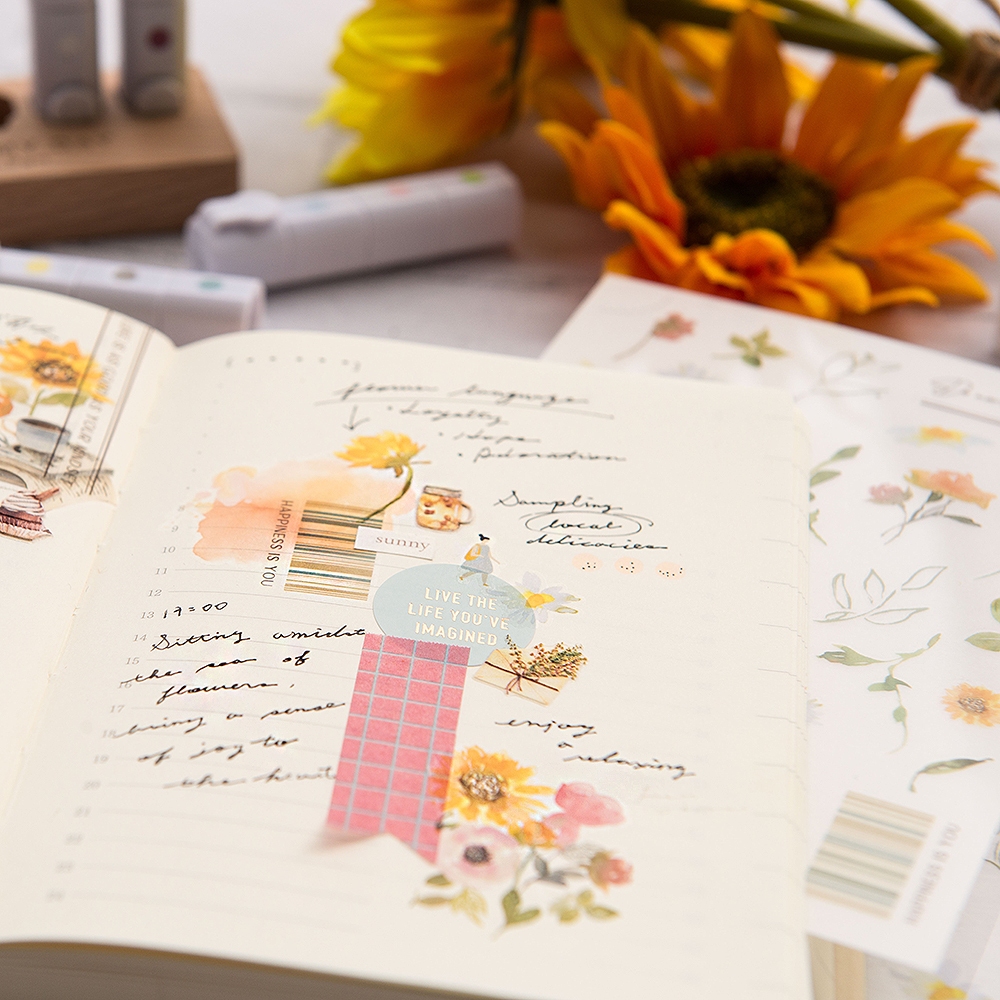 flower language
• Loyalty
• Hope
• Adoration
Sampling
local
delicacies
HAPPINESS IS YOU
sunny
LIVE THE
LIFE YOU'VE
IMAGINED
9
10
11
12
13
14
15
16
17
18
19
20
17:00
Sitting amidst
the sea of
flowers,
bring a sense
of joy to
the
enjoy
a
relaxing
HAPPINESS IS YOU